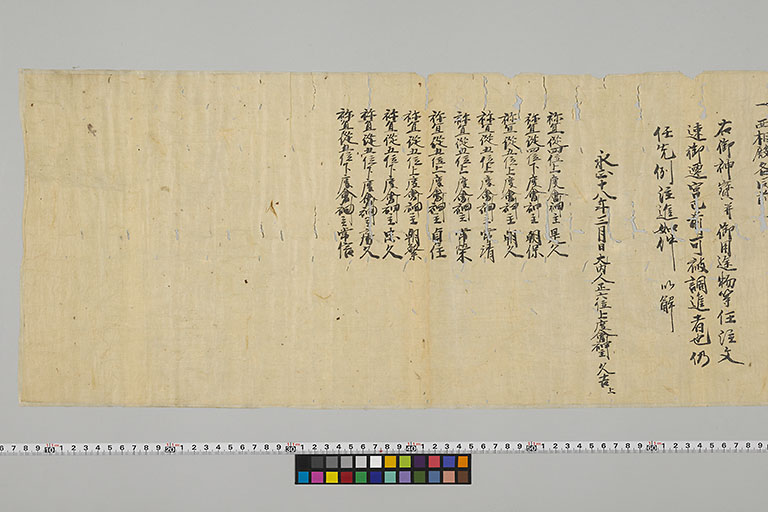 右御神寳并御用途物等任注文
速御遷宮已前可被調進者也仍
任先例注進如件　以解
永正十八年三月日大内人正六位上度會神主久吉上
祢宜從四位上度會神主晨久
祢宜從四位下度會神主朝保
祢宜從五位上度會神主朝久
祢宜從五位上度會神主常清
祢宜從五位上度會神主常榮
祢宜從五位上度會神主貞任
祢宜從五位上度會神主朝繁
祢宜從五位下度會神主忠久
祢宜從五位下度會神主度久
祢宜從五位下度會神主常信